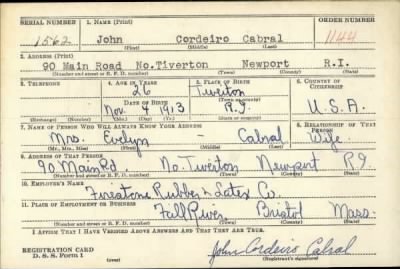 SERIAL NUMBER 1. NAME (Print) ORDER NUMBER
1562 John Cordeiro Cabral 1144
(First) (Middle) (Last)
2. ADDRESS (Print)
90 Main Road No.Tiverton Newport R.I.
(Number and street or R. F. D. number) (Town) (County) (State)
3. TELEPHONE 4. AGE IN YEARS 5. PLACE OF BIRTH 6. COUNTRY OF CITIZENSHIP
26 Tiverton
DATE OF BIRTH (Town or county)
Nov 4 1913 R.I. U.S.A.
(Exchange) (Number) (Mo.) (Day) (Yr.) (State or country)
7. NAME OF PERSON WHO WILL ALWAYS KNOW YOUR ADDRESS 8. RELATIONSHIP OF THAT PERSON
Mrs. Evelyn - Cabral Wife
(Mr., Mrs., Miss) (First) (Middle) (Last)
9. ADDRESS OF THAT PERSON
90 Main Rd. No. Tiverton Newport R.I.
(Number and street or R. F. D. number) (Town) (County) (State)
10. EMPLOYER'S NAME
Firestone Rubber & Latex Co.
11. PLACE OF EMPLOYMENT OR BUSINESS
Fall River, Bristol Mass.
(Number and street or R. F. D. number) (Town) (County) (State)
I AFFIRM THAT I HAVE VERIFIED ABOVE ANSWERS AND THAT THEY ARE TRUE.
REGISTRATION CARD John Cordeiro Cabral
D. S. S. FORM 1 (over) (Registrant's signature)